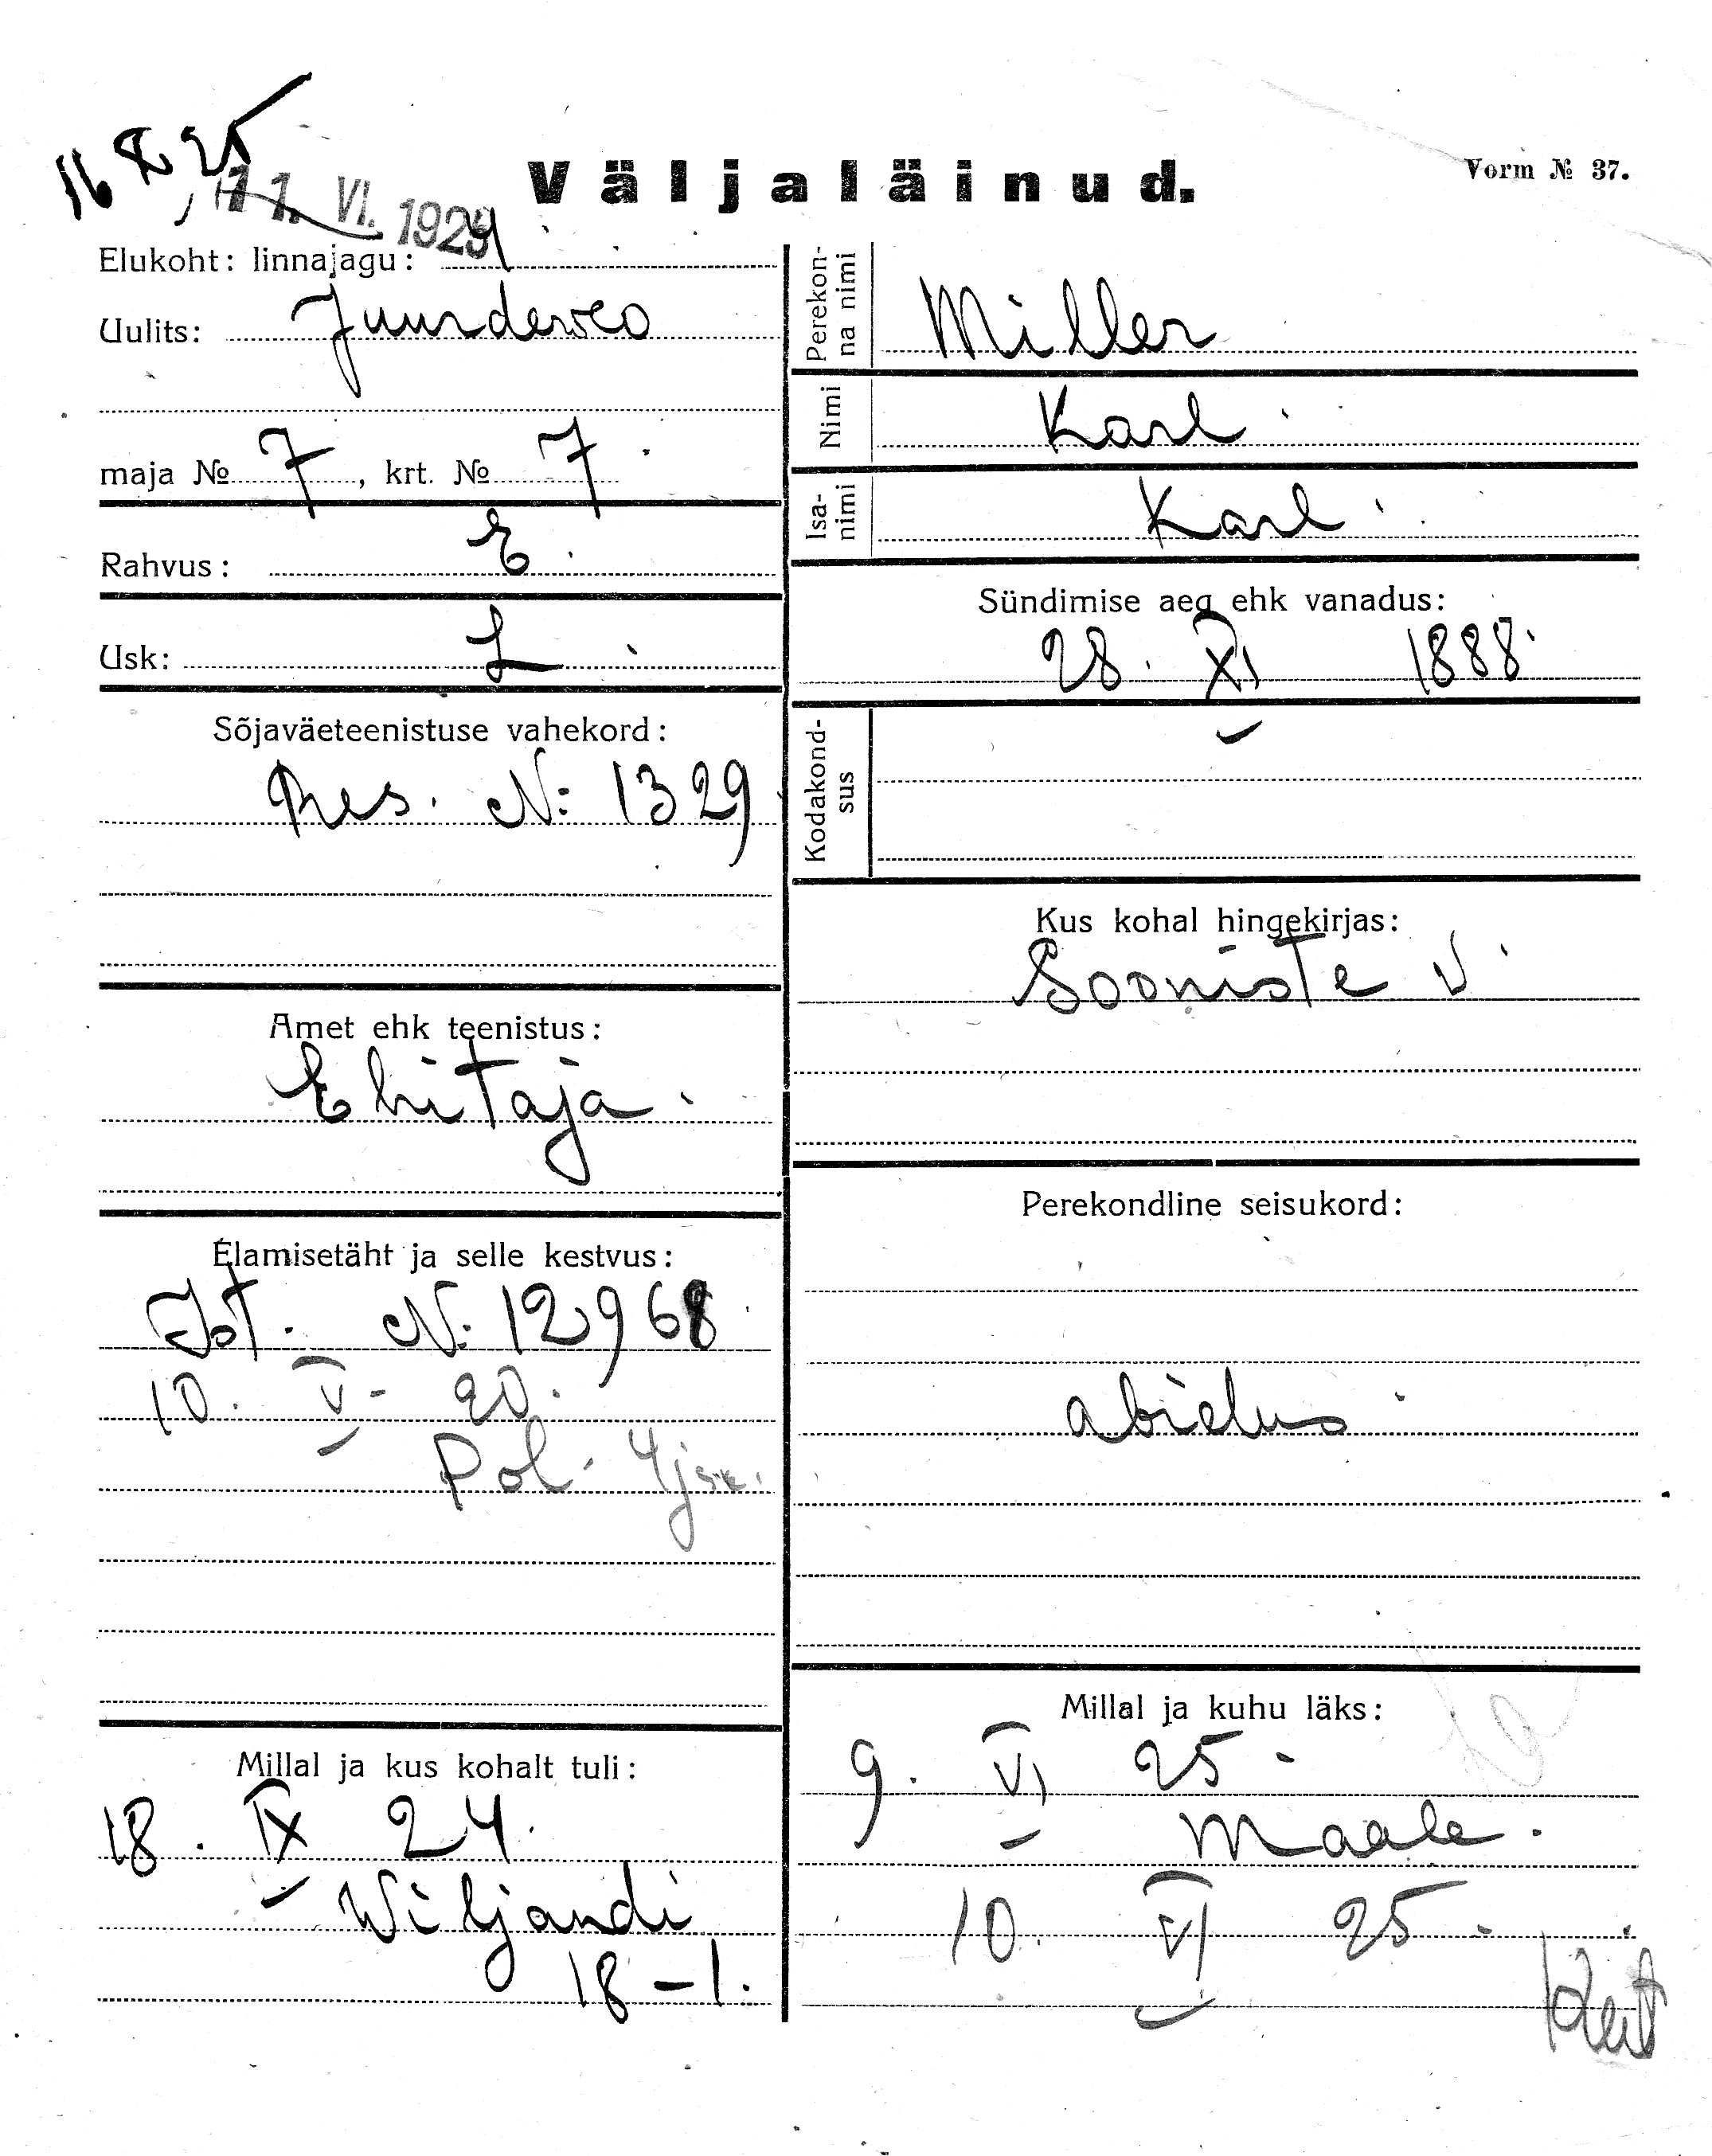 16 X 25
11. VI. 1925
Väljaläinud.
Vorm № 37.
Elukoht: linnajagu: 4
Uulits: Juurdeveo
maja № 7, krt. № 7.
Rahvus: E.
Usk: L.
Sõjaväeteenistuse vahekord:
Res. N: 1329
Amet ehk teenistus:
Ehitaja.
Elamisetäht ja selle kestvus:
Ist. N: 12968
10. V - 20.
Pol. 4 jsk.
Millal ja kus kohalt tuli:
18. IX 24.
Wiljandi
18-1.
Perekonna nimi
Miller
Nimi
Karl
Isanimi
Karl
Sündimise aeg ehk vanadus:
28. XI 1888.
Kodakondsus
Kus kohal hingekirjas:
Sooniste v.
Perekondline seisukord:
abielus
Millal ja kuhu läks:
9. VI 25 -
Maale.
10. VI 25 -